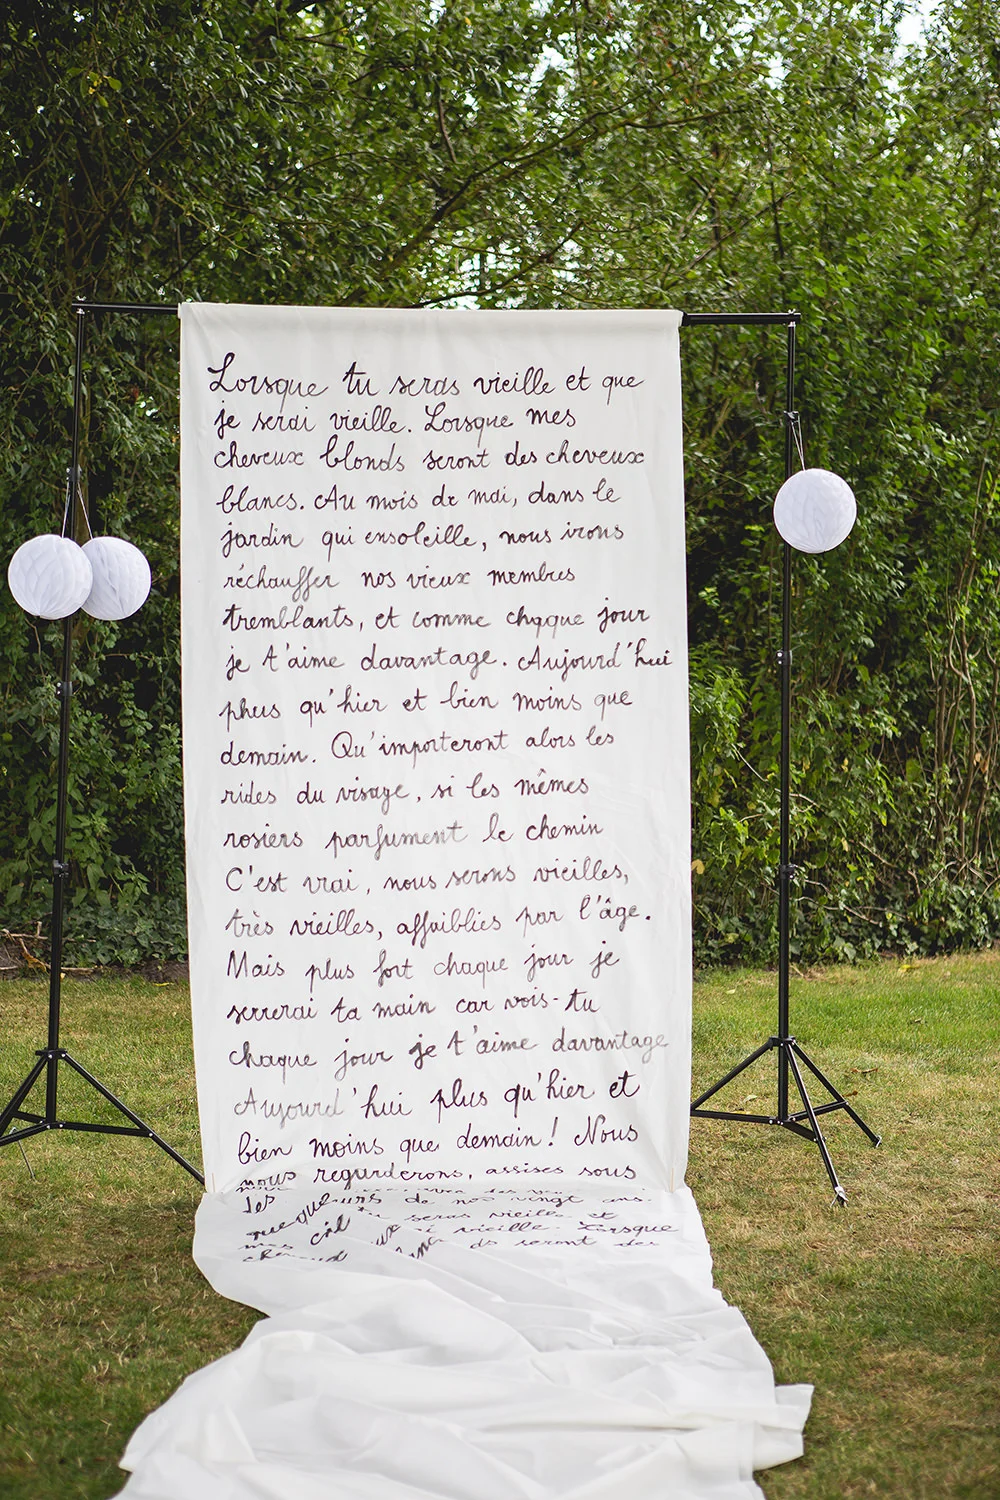 Lorsque tu seras vieille et que
je serai vieille. Lorsque mes
cheveux blonds seront des cheveux
blancs. Au mois de mai, dans le
jardin qui ensoleille, nous irons
réchauffer nos vieux membres
tremblants, et comme chaque jour
je t'aime davantage. Aujourd'hui
plus qu'hier et bien moins que
demain. Qu'importeront alors les
rides du visage, si les mêmes
rosiers parfument le chemin
C'est vrai, nous serons vieilles,
très vieilles, affaiblies par l'âge.
Mais plus fort chaque jour je
serrerai ta main car vois-tu
chaque jour je t'aime davantage
Aujourd'hui plus qu'hier et
bien moins que demain! Nous
nous regarderons, assises sous
de nos vingt ans.
tu seras vieille et
vieille. Lorsque
seront des